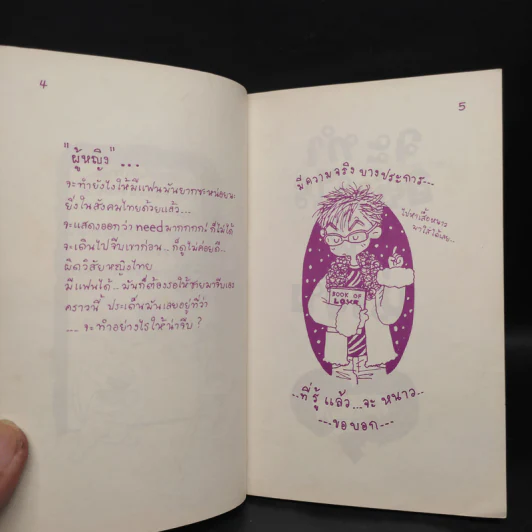 4
"ผู้หญิง" ...
จะทำยังไงให้มีแฟนมันยากซะหน่อยนะ
ยิ่งในสังคมไทยด้วยแล้ว...
จะแสดงออกว่า need มากกกก! ก็ไม่ได้
จะเดินไปจีบเขาก่อน.. ก็ดูไม่ค่อยดี..
ผิดวิสัยหญิงไทย
มีแฟนได้.. มันก็ต้องรอให้ชายมาจีบเอง
คราวนี้ ประเด็นมันเลยอยู่ที่ว่า
.... จะ ทำอย่างไรให้น่าจีบ ?
5
มีความจริง บางประการ...
ไปหาเสื้อหนาว
มาใส่ได้เลย...
BOOK OF
LOVE
..ที่รู้ แล้ว...จะ หนาว..
...ขอบอก...